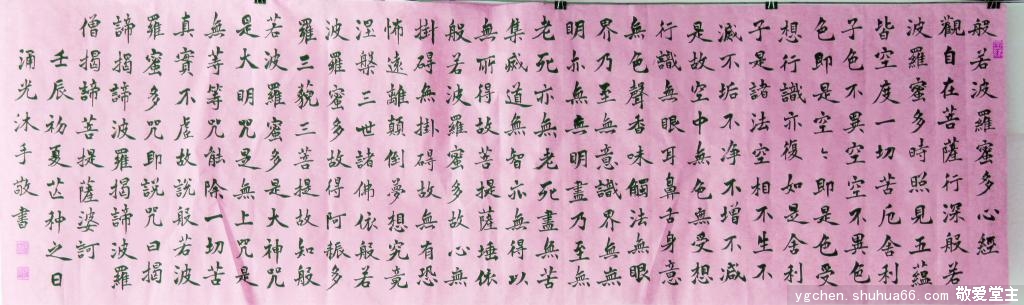 般若波羅蜜多心經
觀自在菩薩行深般若
波羅蜜多時照見五蘊
皆空度一切苦厄舍利
子色不異空空不異色
色即是空〻即是色受
想行識亦復如是舍利
子是諸法空相不生不
滅不垢不净不增不減
是故空中無色無受想
行識無眼耳鼻舌身意
無色聲香味觸法無眼
界乃至無意識界無無
明亦無無明盡乃至無
老死亦無老死盡無苦
集滅道無智亦無得以
無所得故菩提薩埵依
般若波羅蜜多故心無
掛碍無掛碍故無有恐
怖遠離顛倒夢想究竟
涅槃三世諸佛依般若
波羅蜜多故得阿耨多
羅三藐三菩提故知般
若波羅蜜多是大神咒
是大明咒是無上咒是
無等等咒能除一切苦
真實不虛故說般若波
羅蜜多咒即說咒曰揭
諦揭諦波羅揭諦波羅
僧揭諦菩提薩婆訶
壬辰初夏芒神之日
涌光沐手敬書
ygchen.shuhua66.com 敬爱堂主